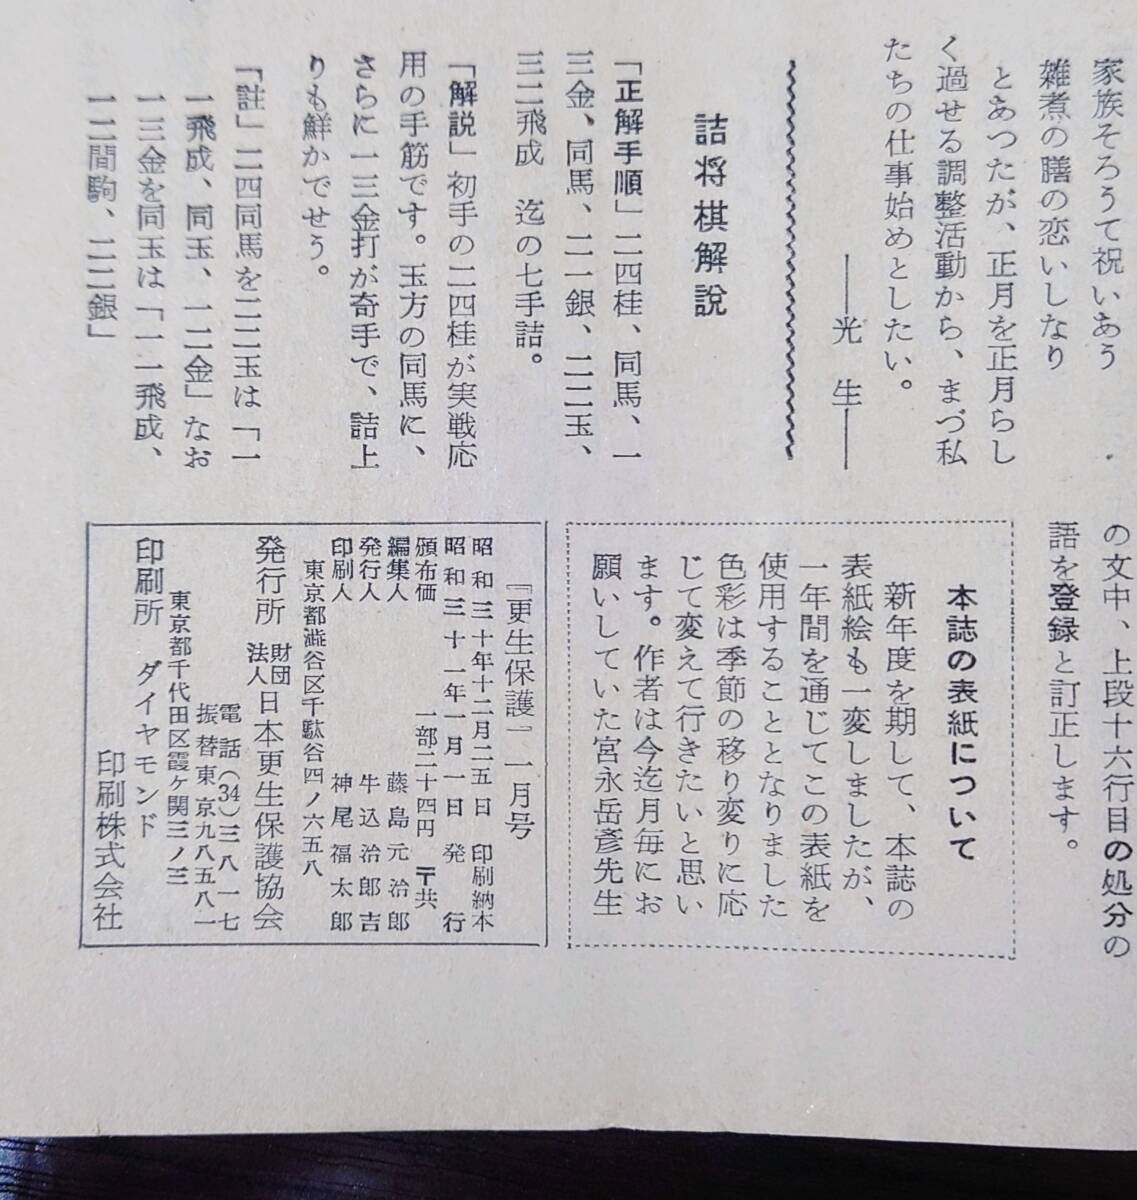 家族そろうて祝いあう
雑煮の膳の恋いしなり
とあつたが、正月を正月らし
く過せる調整活動から、まづ私
たちの仕事始めとしたい。
――光生――
詰将棋解説
「正解手順」二四桂、同馬、一
三金、同馬、二一銀、二二玉、
三二飛成　迄の七手詰。
「解説」初手の二四桂が実戦応
用の手筋です。玉方の同馬に、
さらに一三金打が奇手で、詰上
りも鮮かでせう。
「註」二四同馬を二二玉は「一
一飛成、同玉、一二金」なお
一三金を同玉は「一一飛成、
一二間駒、二二銀」
の文中、上段十六行目の処分の
語を登録と訂正します。
本誌の表紙について
新年度を期して、本誌の
表紙絵も一変しましたが、
一年間を通じてこの表紙を
使用することとなりました
色彩は季節の移り変りに応
じて変えて行きたいと思い
ます。作者は今迄月毎にお
願いしていた宮永岳彥先生
『更生保護』一月号
昭和三十年十二月二五日　印刷納本
昭和三十一年一月一日　発行
頒布価　一部二十四円　〒共
編集人　藤島元治郎
発行人　牛込治郎吉
印刷人　神尾福太郎
東京都澁谷区千駄谷四ノ六五八
発行所　財団法人日本更生保護協会
電話(34)三八一七
振替東京九八五八一
東京都千代田区霞ヶ関三ノ三
印刷所　ダイヤモンド
印刷株式会社